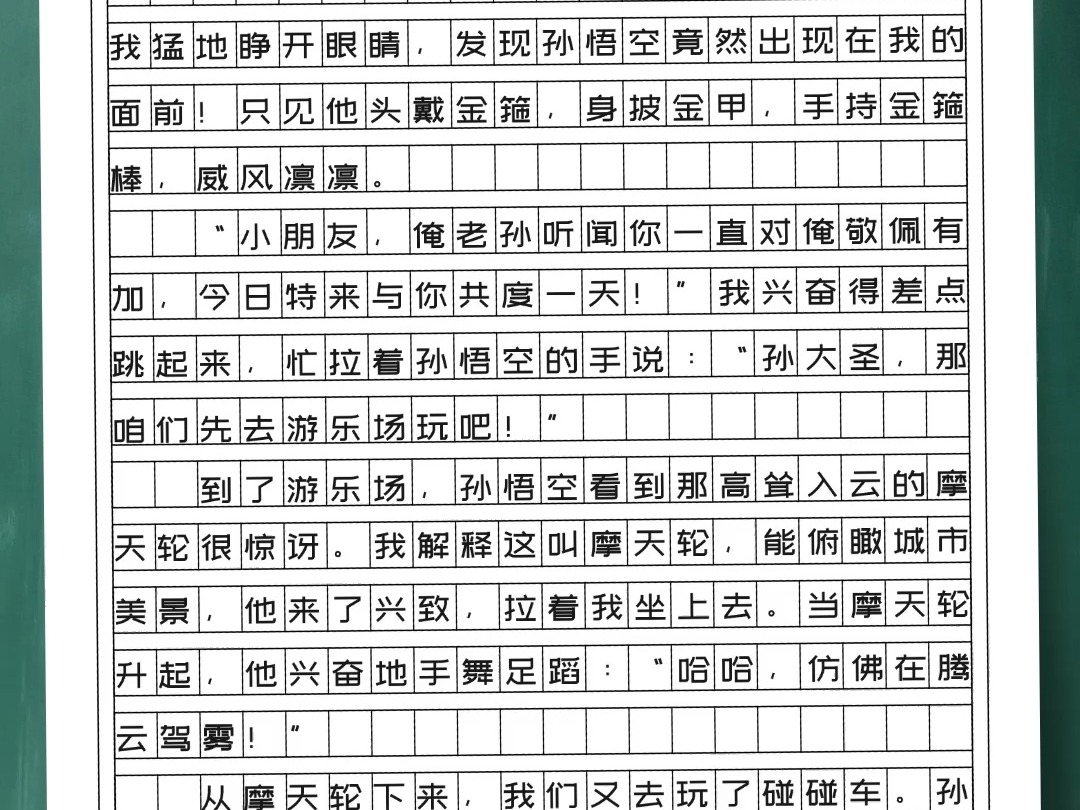 我猛地睁开眼睛，发现孙悟空竟然出现在我的
面前！只见他头戴金箍，身披金甲，手持金箍
棒，威风凛凛。
“小朋友，俺老孙听闻你一直对俺敬佩有
加，今日特来与你共度一天！”我兴奋得差点
跳起来，忙拉着孙悟空的手说：“孙大圣，那
咱们先去游乐场玩吧！”
到了游乐场，孙悟空看到那高耸入云的摩
天轮很惊讶。我解释这叫摩天轮，能俯瞰城市
美景，他来了兴致，拉着我坐上去。当摩天轮
升起，他兴奋地手舞足蹈：“哈哈，仿佛在腾
云驾雾！”
从摩天轮下来，我们又去玩了碰碰车。孙